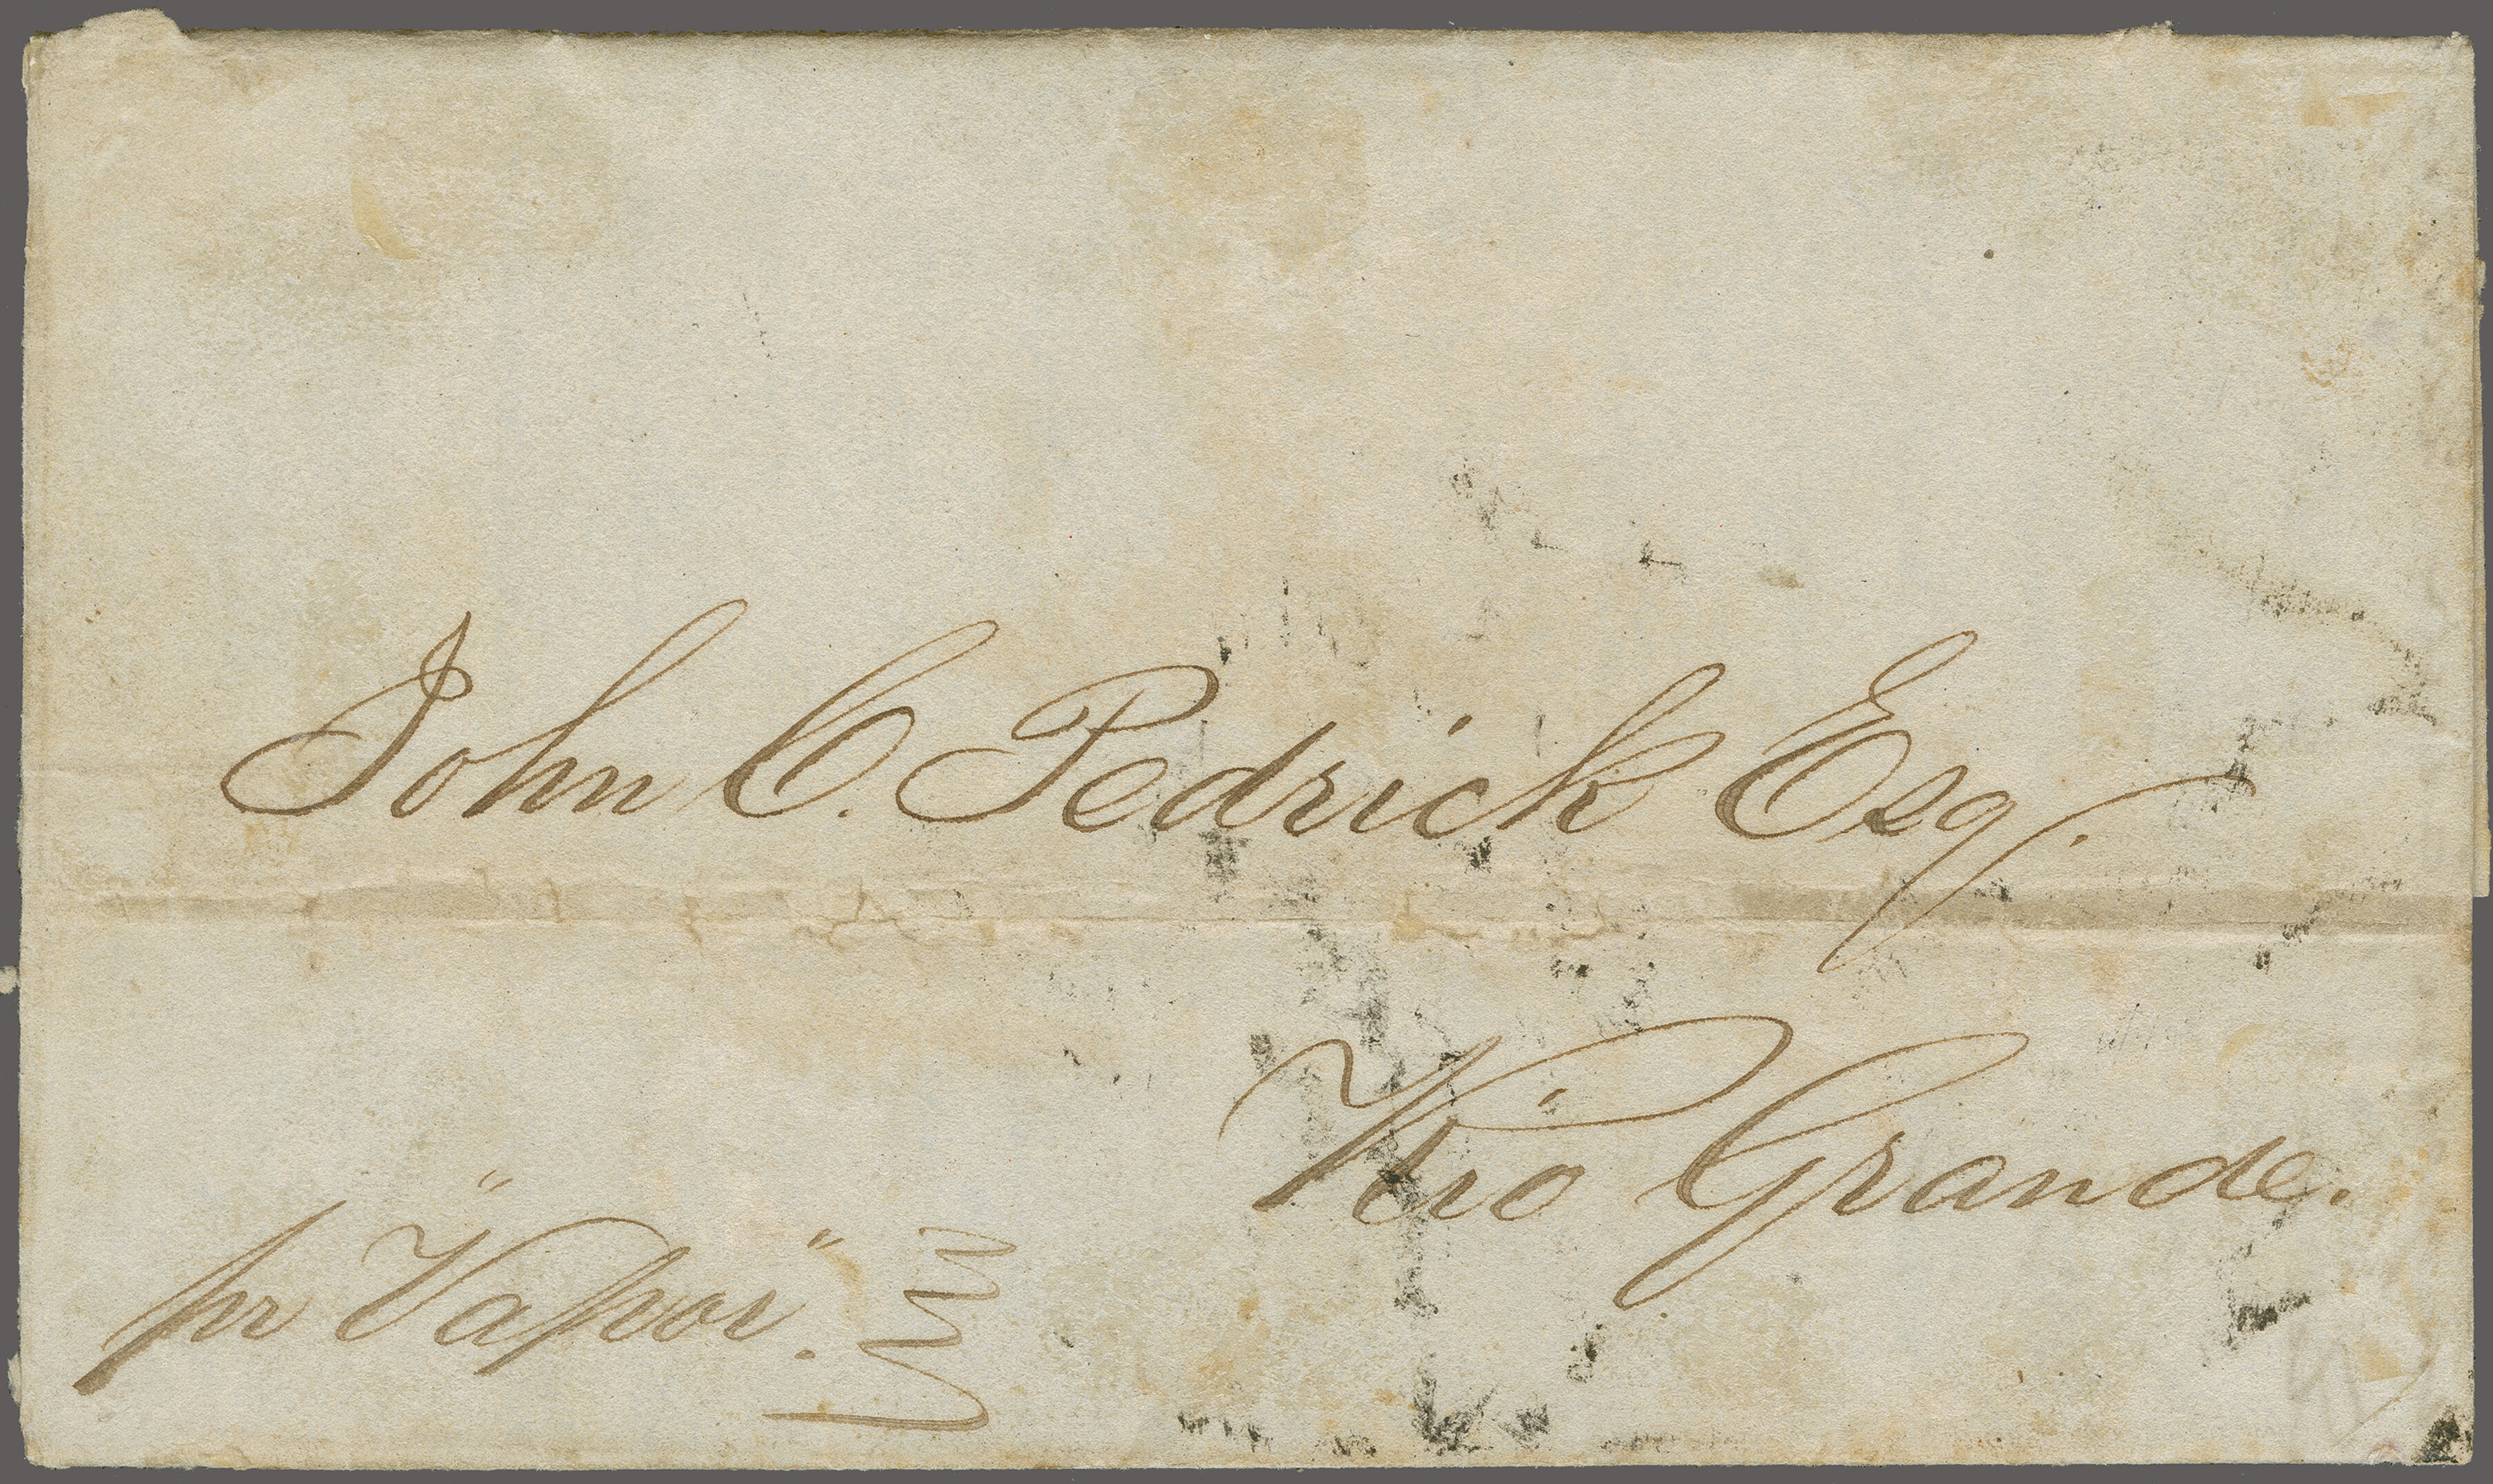 John C. Pedrick Esq.
Rio Grande.
pr "Vapor".